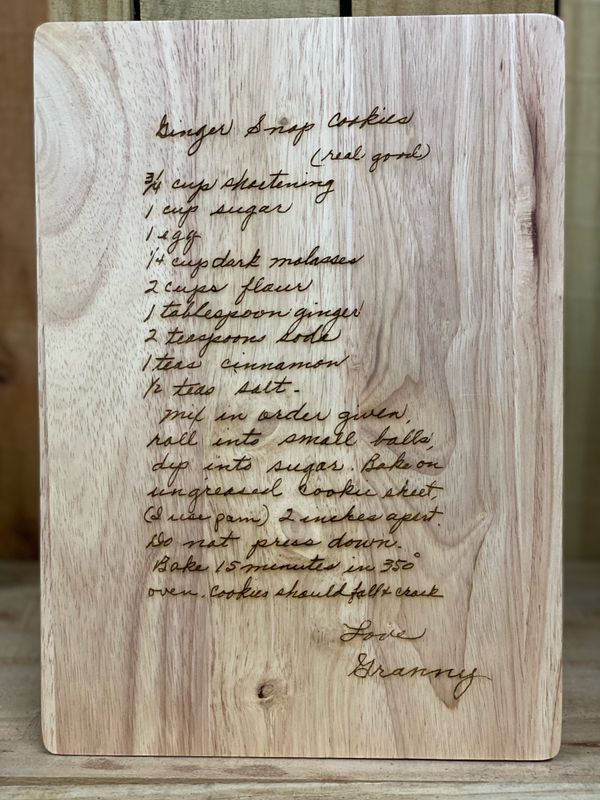 Ginger Snap Cookies
(real good)
3/4 cup shortening
1 cup sugar
1 egg
1/4 cup dark molasses
2 cups flour
1 tablespoon ginger
2 teaspoons soda
1 teas cinnamon
1/2 teas salt.
Mix in order given,
roll into small balls,
dip into sugar. Bake on
ungreased cookie sheet,
(I use pam) 2 inches apart.
Do not press down.
Bake 15 minutes in 350°
oven. Cookies should fall & crack
Love
Granny